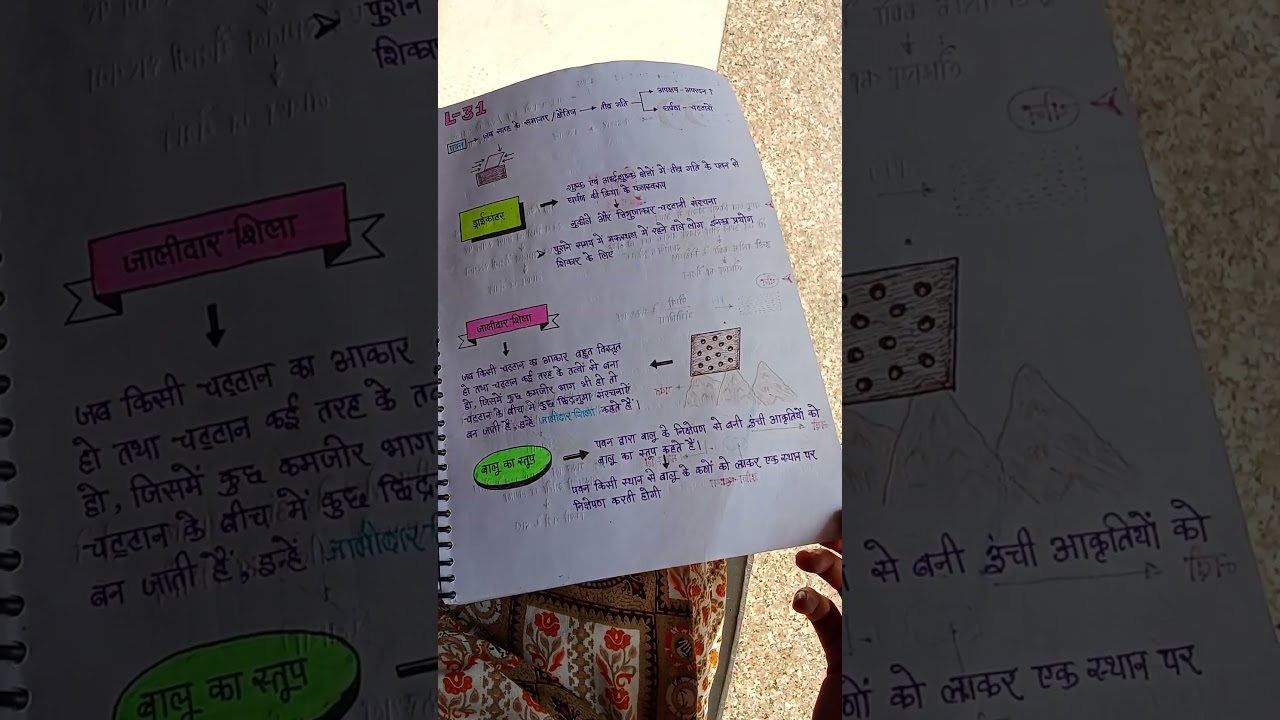 L-31
पवन → जब सतह के समान्तर / क्षैतिज → तीव्र गति
अपक्षय - अपरदन ↑
घर्षण - चट्टानों
ड्राईकांटर
शुष्क एवं अर्द्धशुष्क क्षेत्रों में तीव्र गति के पवन से
घर्षण की क्रिया के फलस्वरूप
नुकीले और त्रिभुजाकार चट्टानी संरचना
पुराने समय में मरुस्थल में रहने वाले लोग इनका प्रयोग
शिकार के लिए
जालीदार शिला
जब किसी चट्टान का आकार बहुत विस्तृत
हो तथा चट्टान कई तरह के तत्वों से बना
हो, जिसमें कुछ कमजोर भाग भी हो तो
चट्टान के बीच में कुछ छिद्रनुमा संरचनाएँ
बन जाती हैं, इन्हें जालीदार शिला कहते हैं।
बालू का स्तूप
पवन द्वारा बालू के निक्षेपण से बनी इंची आकृतियों को
बालू का स्तूप कहते हैं।
पवन किसी स्थान से बालू के कणों को लाकर एक स्थान पर
निक्षेपण करती होगी